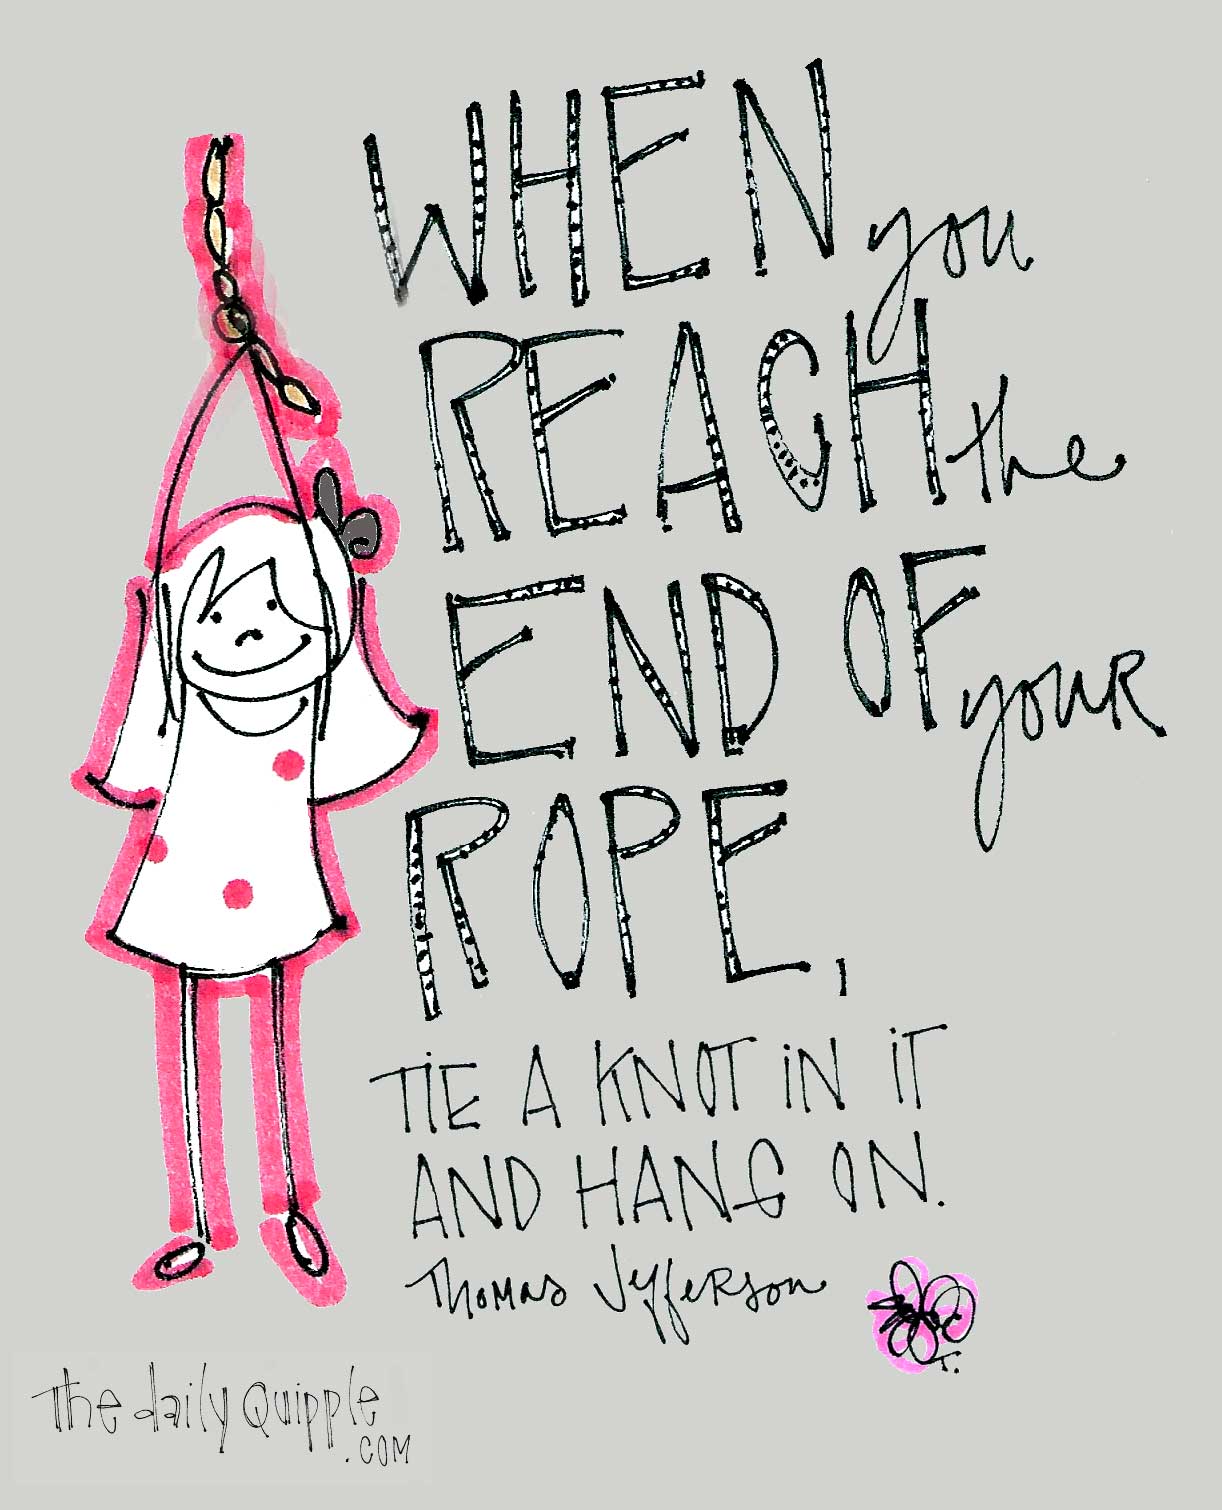 WHEN you
REACH the
END OF youR
ROPE,
TiE A KNOT iN iT
AND HANG ON.
Thomas Jefferson
T.
The daily Quipple
.COM